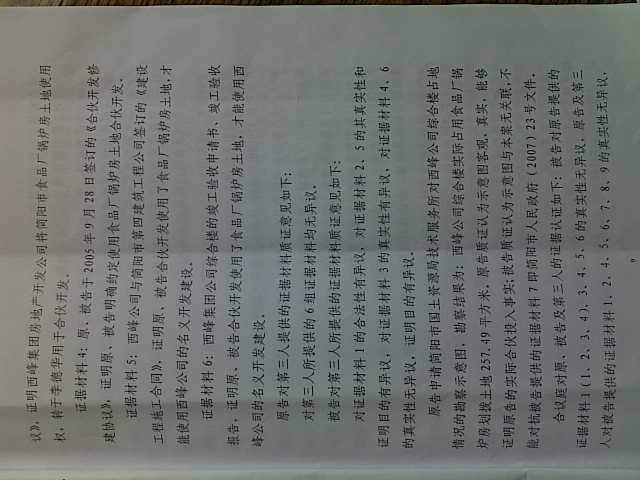 议》,证明西峰集团房地产开发公司将简阳市食品厂锅炉房土地使用
权,转于李德华用于合伙开发。
证据材料4:原、被告于2005年9月28日签订的《合伙开发修
建协议》,证明原、被告明确约定使用食品厂锅炉房土地合伙开发。
证据材料5:西峰公司与简阳市第四建筑工程公司签订的《建设
工程施工合同》,证明原、被告合伙开发使用了食品厂锅炉房土地,才
能使用西峰公司的名义开发建设。
证据材料6:西峰集团公司综合楼的竣工验收申请书、竣工验收
报告,证明原、被告合伙开发使用了食品厂锅炉房土地,才能使用西
峰公司的名义开发建设。
原告对第三人提供的证据材料质证意见如下:
对第三人所提供的6组证据材料均无异议。
被告对第三人所提供的证据材料质证意见如下:
对证据材料1的合法性有异议,对证据材料2、5的其真实性和
证明目的有异议,对证据材料3的真实性有异议,对证据材料4、6
的真实性无异议,证明目的有异议。
原告申请简阳市国土资源局技术服务所对西峰公司综合楼占地
情况的勘察示意图,勘察结果为:西峰公司综合楼实际占用食品厂锅
炉房划拨土地257.49平方米,原告质证认为示意图客观、真实,能够
证明原告的实际合伙投入事实;被告质证认为示意图与本案无关联,不
能对抗被告提供的证据材料7即简阳市人民政府(2007)23号文件。
合议庭对原、被告及第三人的证据认证如下:被告对原告提供的
证据材料1(1、2、3、4)、3、4、5、6的真实性无异议,原告及第三
人对被告提供的证据材料1、2、4、5、6、7、8、9的真实性无异议,
9